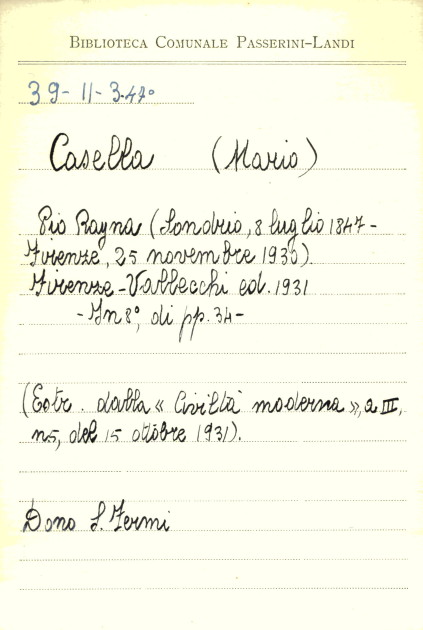 BIBLIOTECA COMUNALE PASSERINI-LANDI
39-11-3.47°
Casella (Mario)
Pio Rayna (Sondrio, 8 luglio 1847-
Firenze, 25 novembre 1930).
Firenze-Vallecchi ed. 1931
-In 8°, di pp. 34-
(Estr. dalla « Civiltà moderna », a III,
n 5, del 15 ottobre 1931).
Dono S. Fermi